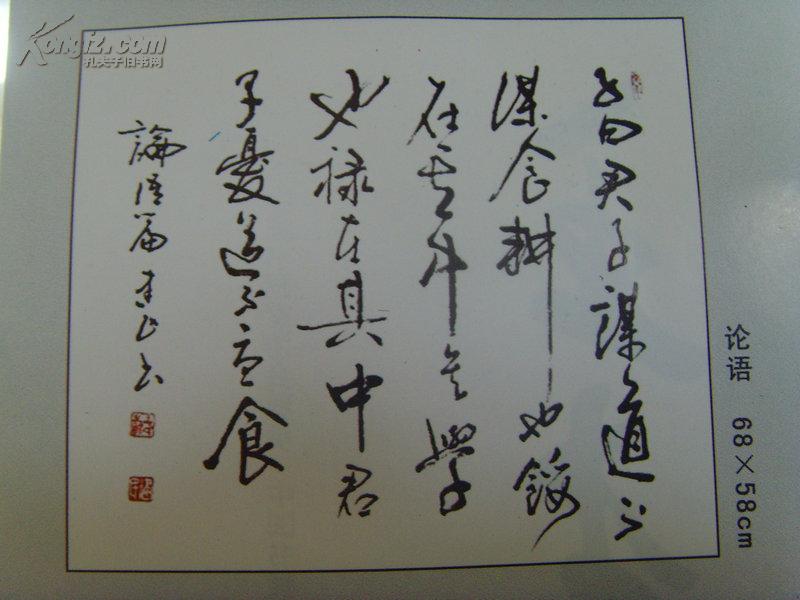 子曰君子謀道不
谋食耕也餒
在其中矣學
也禄在其中君
子憂道不憂食
論语篇 书
论语 68×58cm
Kongfz.com
孔夫子旧书网